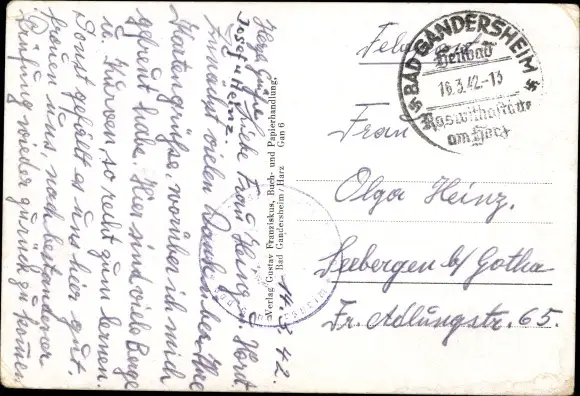 14.3.42.
Liebe Frau Heinz u. Horst
Zunächst vielen Dank f. Ihre
Kartengrüße, worüber ich mich
gefreut habe. Hier sind viele Berge
u. Kurven, so recht zum lernen.
Sonst gefällt es uns hier gut,
freuen uns, nach bestandener
Prüfung wieder zurück zu können.
Herzl. Grüße
Josef u Heinz
Verlag Gustav Franziskus, Buch- und Papierhandlung,
Bad Gandersheim/Harz Gan 6
Feldpost
BAD GANDERSHEIM
Heilbad
18.3.42.-13
Roswithastätte
am Harz
Frau
Olga Heinz.
Seebergen b/ Gotha
Fr. Adlungstr. 65.